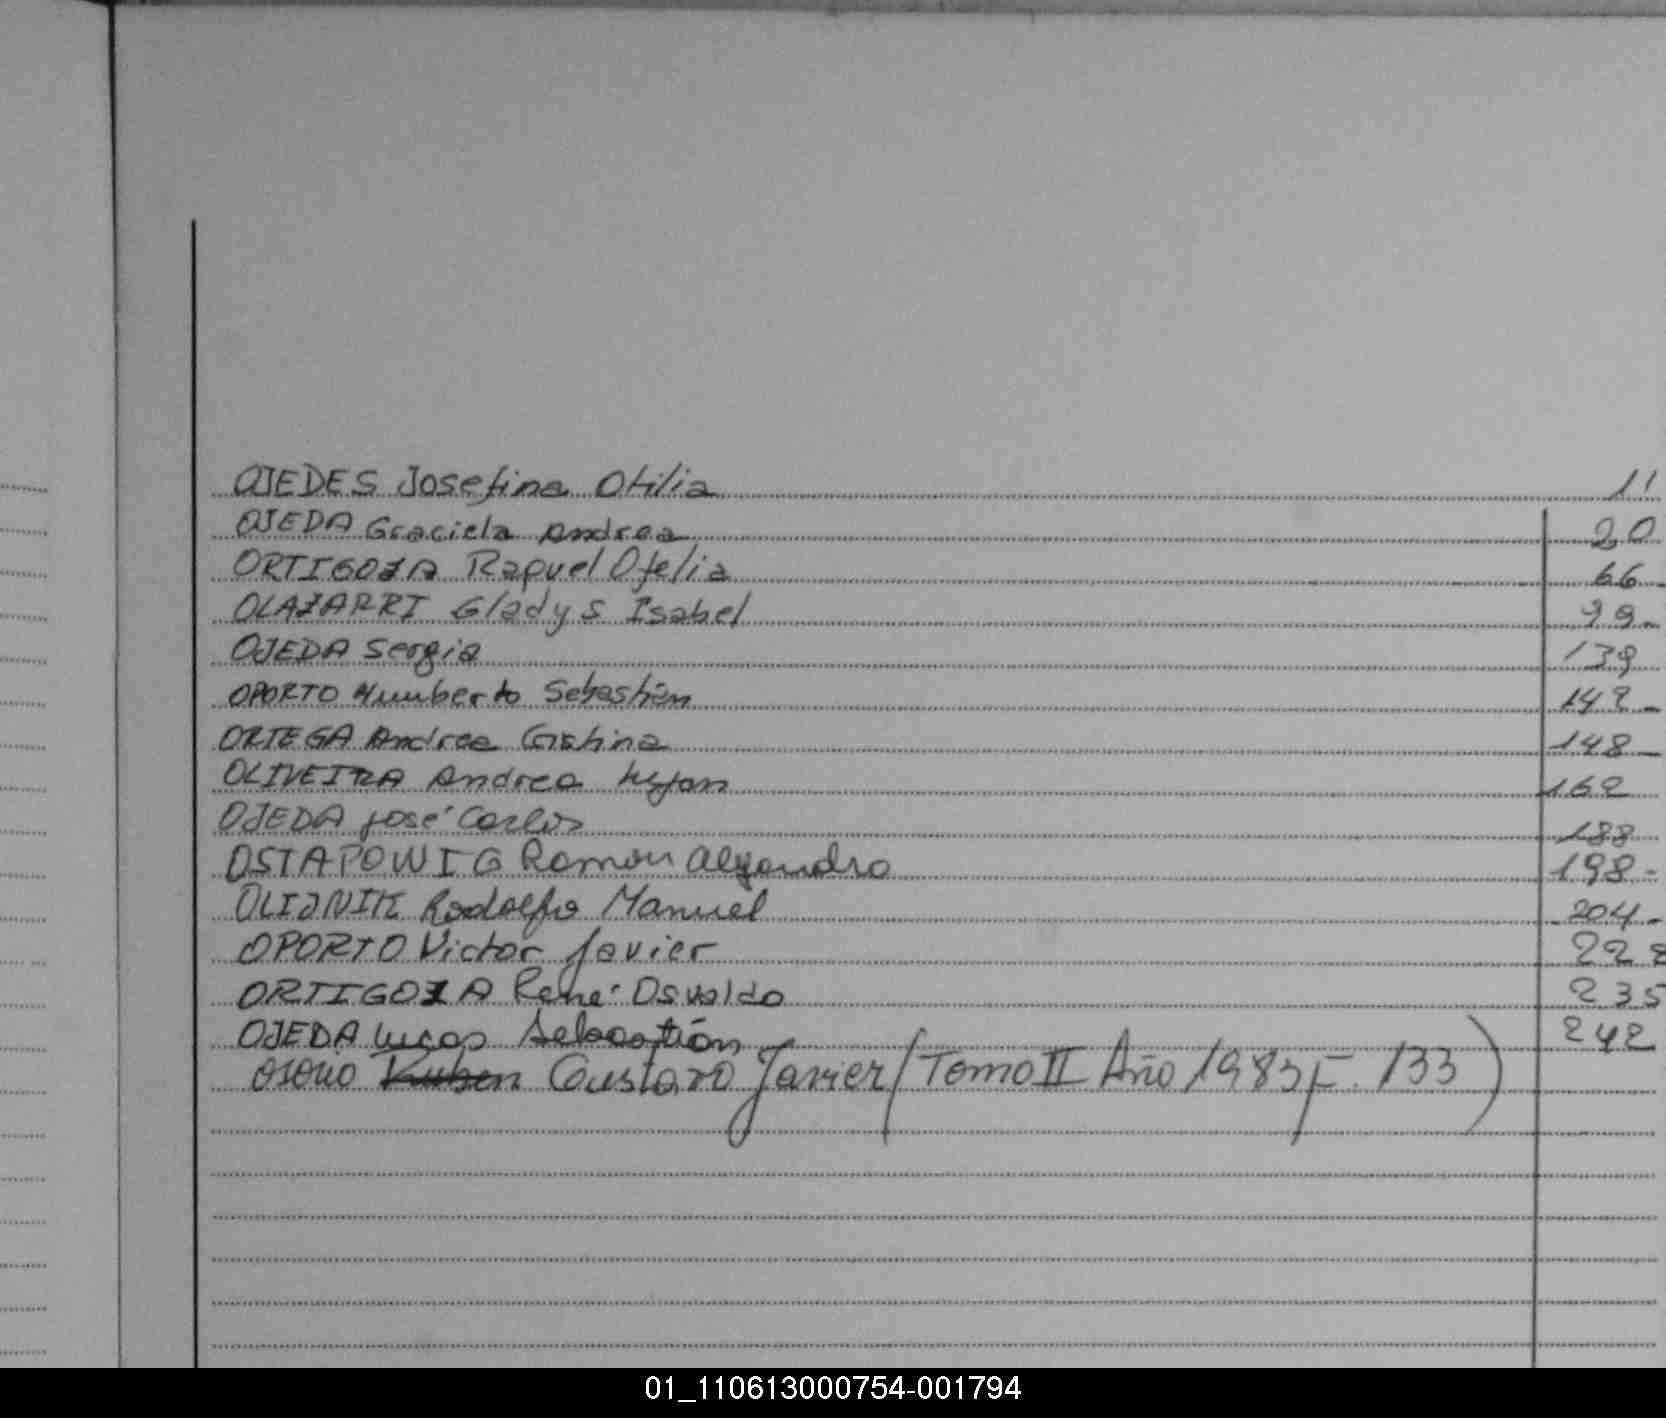 OJEDES Josefina Otilia 11
OJEDA Graciela Andrea 20
ORTIGOZA Raquel Ofelia 66
OLAZARRI Gladys Isabel 99
OJEDA Sergia 139
OPORTO Humberto Sebastián 142
ORTEGA Andrea Cristina 148
OLIVEIRA Andrea Lujan 162
OJEDA José Carlos 188
OSTAPOWIG Ramon Alejandro 198
OLIJNIK Rodolfo Manuel 204
OPORTO Victor Javier 228
ORTIGOZA René Osvaldo 235
OJEDA Lucas Sebastián 242
Gustavo Javier (Tomo II Año 1983 F. 133)
01_110613000754-001794